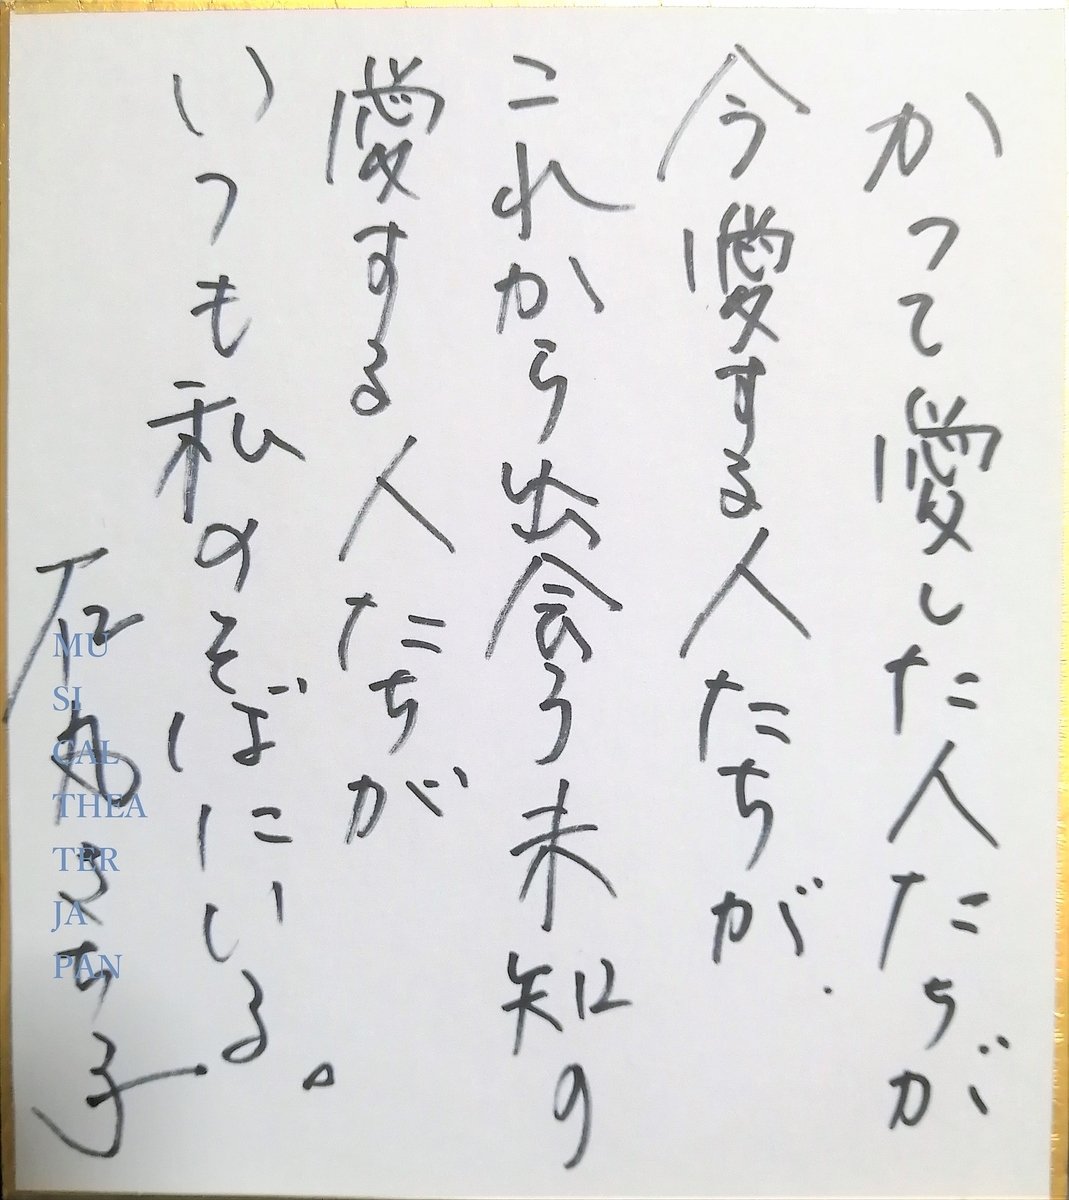 かつて愛した人たちが
今愛する人たちが、
これから出会う未知の
愛する人たちが
いつも私のそばにいる。
石丸さち子
MU
SI
CAL
THEA
TER
JA
PAN